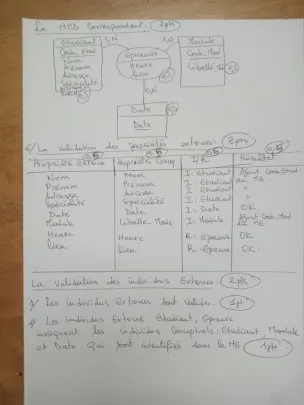 Le MCD Correspondant : 2pts
Etudiant
Code_Etud
Nom
Prénom
Adresse
Spécialité
1,N
Epreuve
Heure
lieu
0,5
1,N
Module
Code_Mod
Libellé
0,5
0,N
Date
Date
0,5
6/ La Validation des propriétés externes : 2pts
Propriété Externe
Propriété Concep
I/R
Résultat
0,5
0,5
0,5
0,5
Nom
Nom
I : Etudiant
Ajout Code_Etud
Prénom
Prénom
I : Etudiant
Adresse
Adresse
I : Etudiant
Spécialité
Spécialité
I : Etudiant
Date
Date
I : Date
OK
Module
Libelle Mode
I : Module
Ajout Code_Mod
Heure
Heure
R : Epreuve
OK
lieu
lieu
R : Epreuve
OK
La Validation des individus Externes : 2pts
1/ Les individus Externes sont Valides. 1pt
Les individus Externe Etudiant, Epreuve
invoquent les individus Conceptuels : Etudiant Module
et Date qui sont identifiés dans le ME 1pts